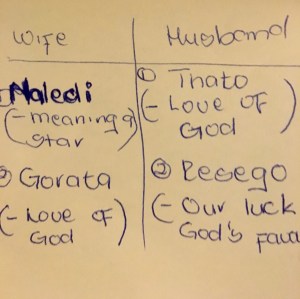 Wife
Husband
Naledi
(- meaning a
star
② Gorata
(- Love OF
God)
① Thato
(- Love OF
God)
② Lesego
(- Our luck
God's favo